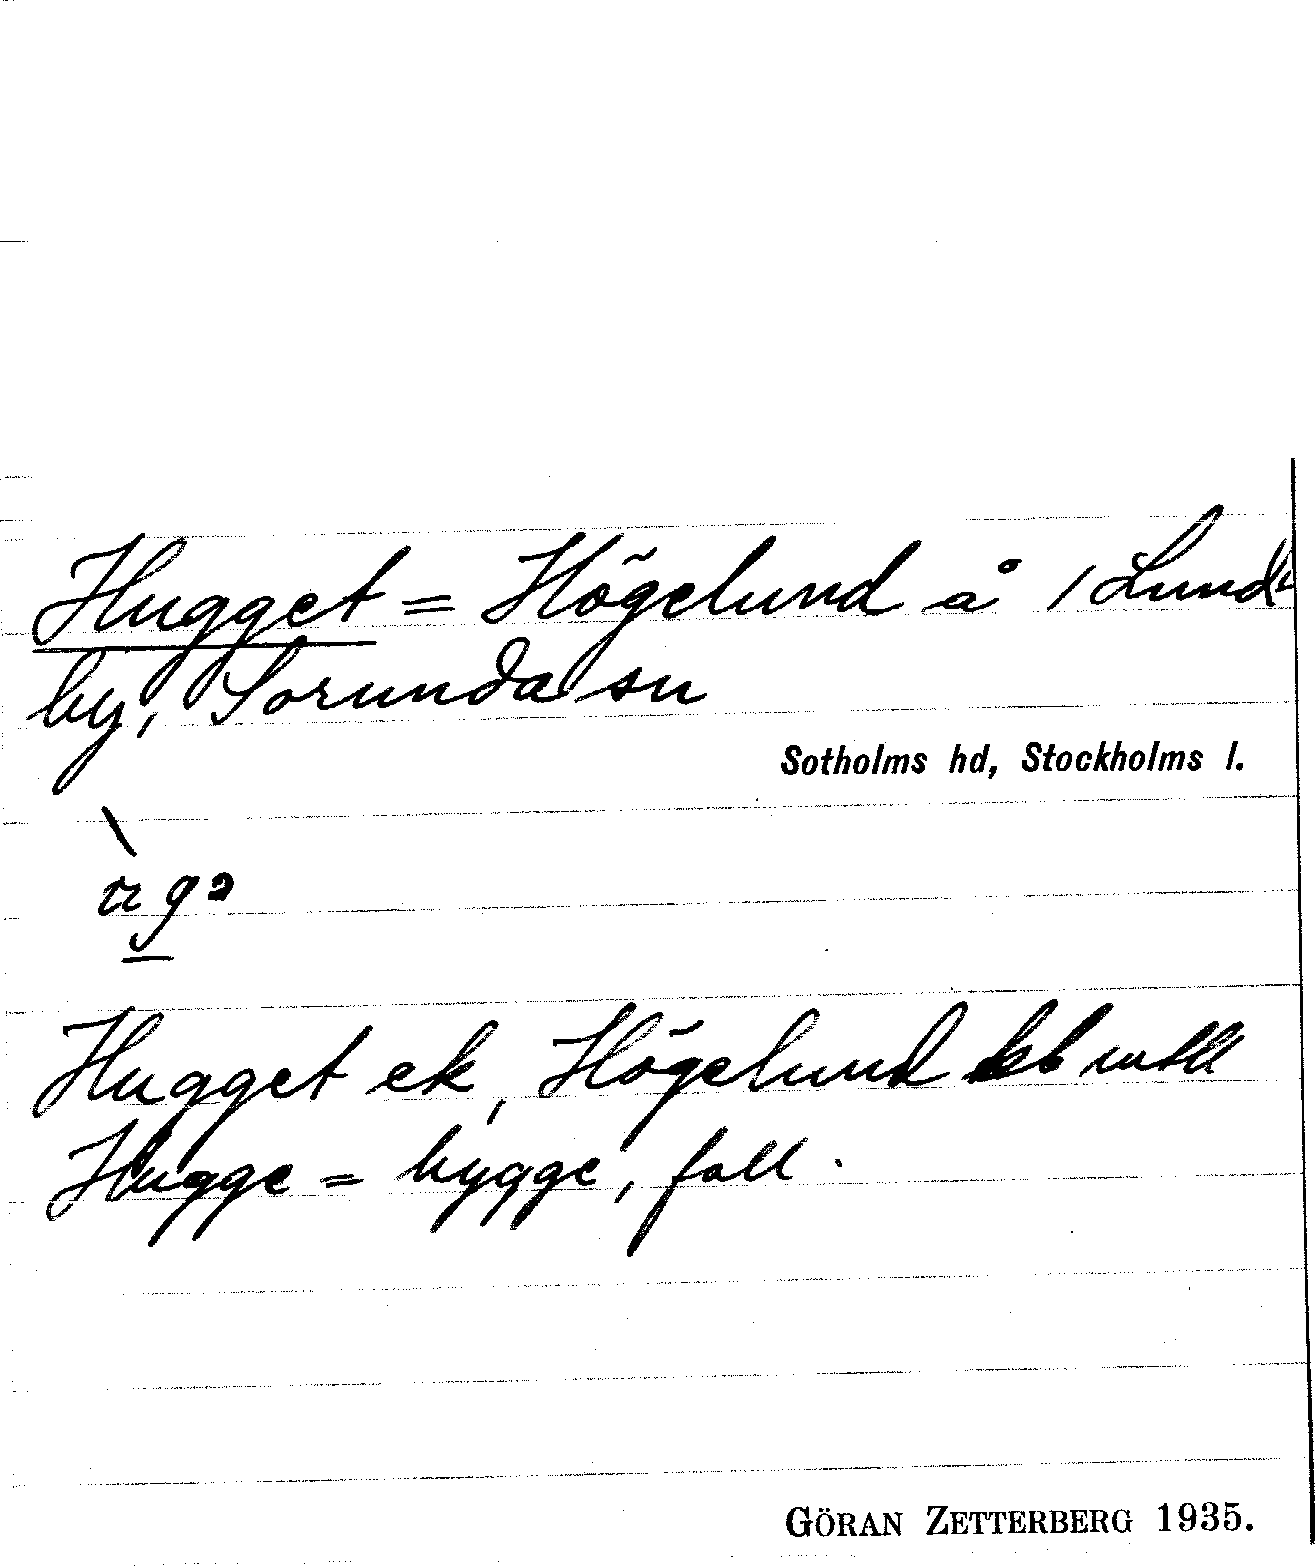 Hugget = Högelund å 1 Lund-
by, Sorunda sn
Sotholms hd, Stockholms l.
Hugget ek, Högelund
Hugge = hygge, fall.
GÖRAN ZETTERBERG 1935.